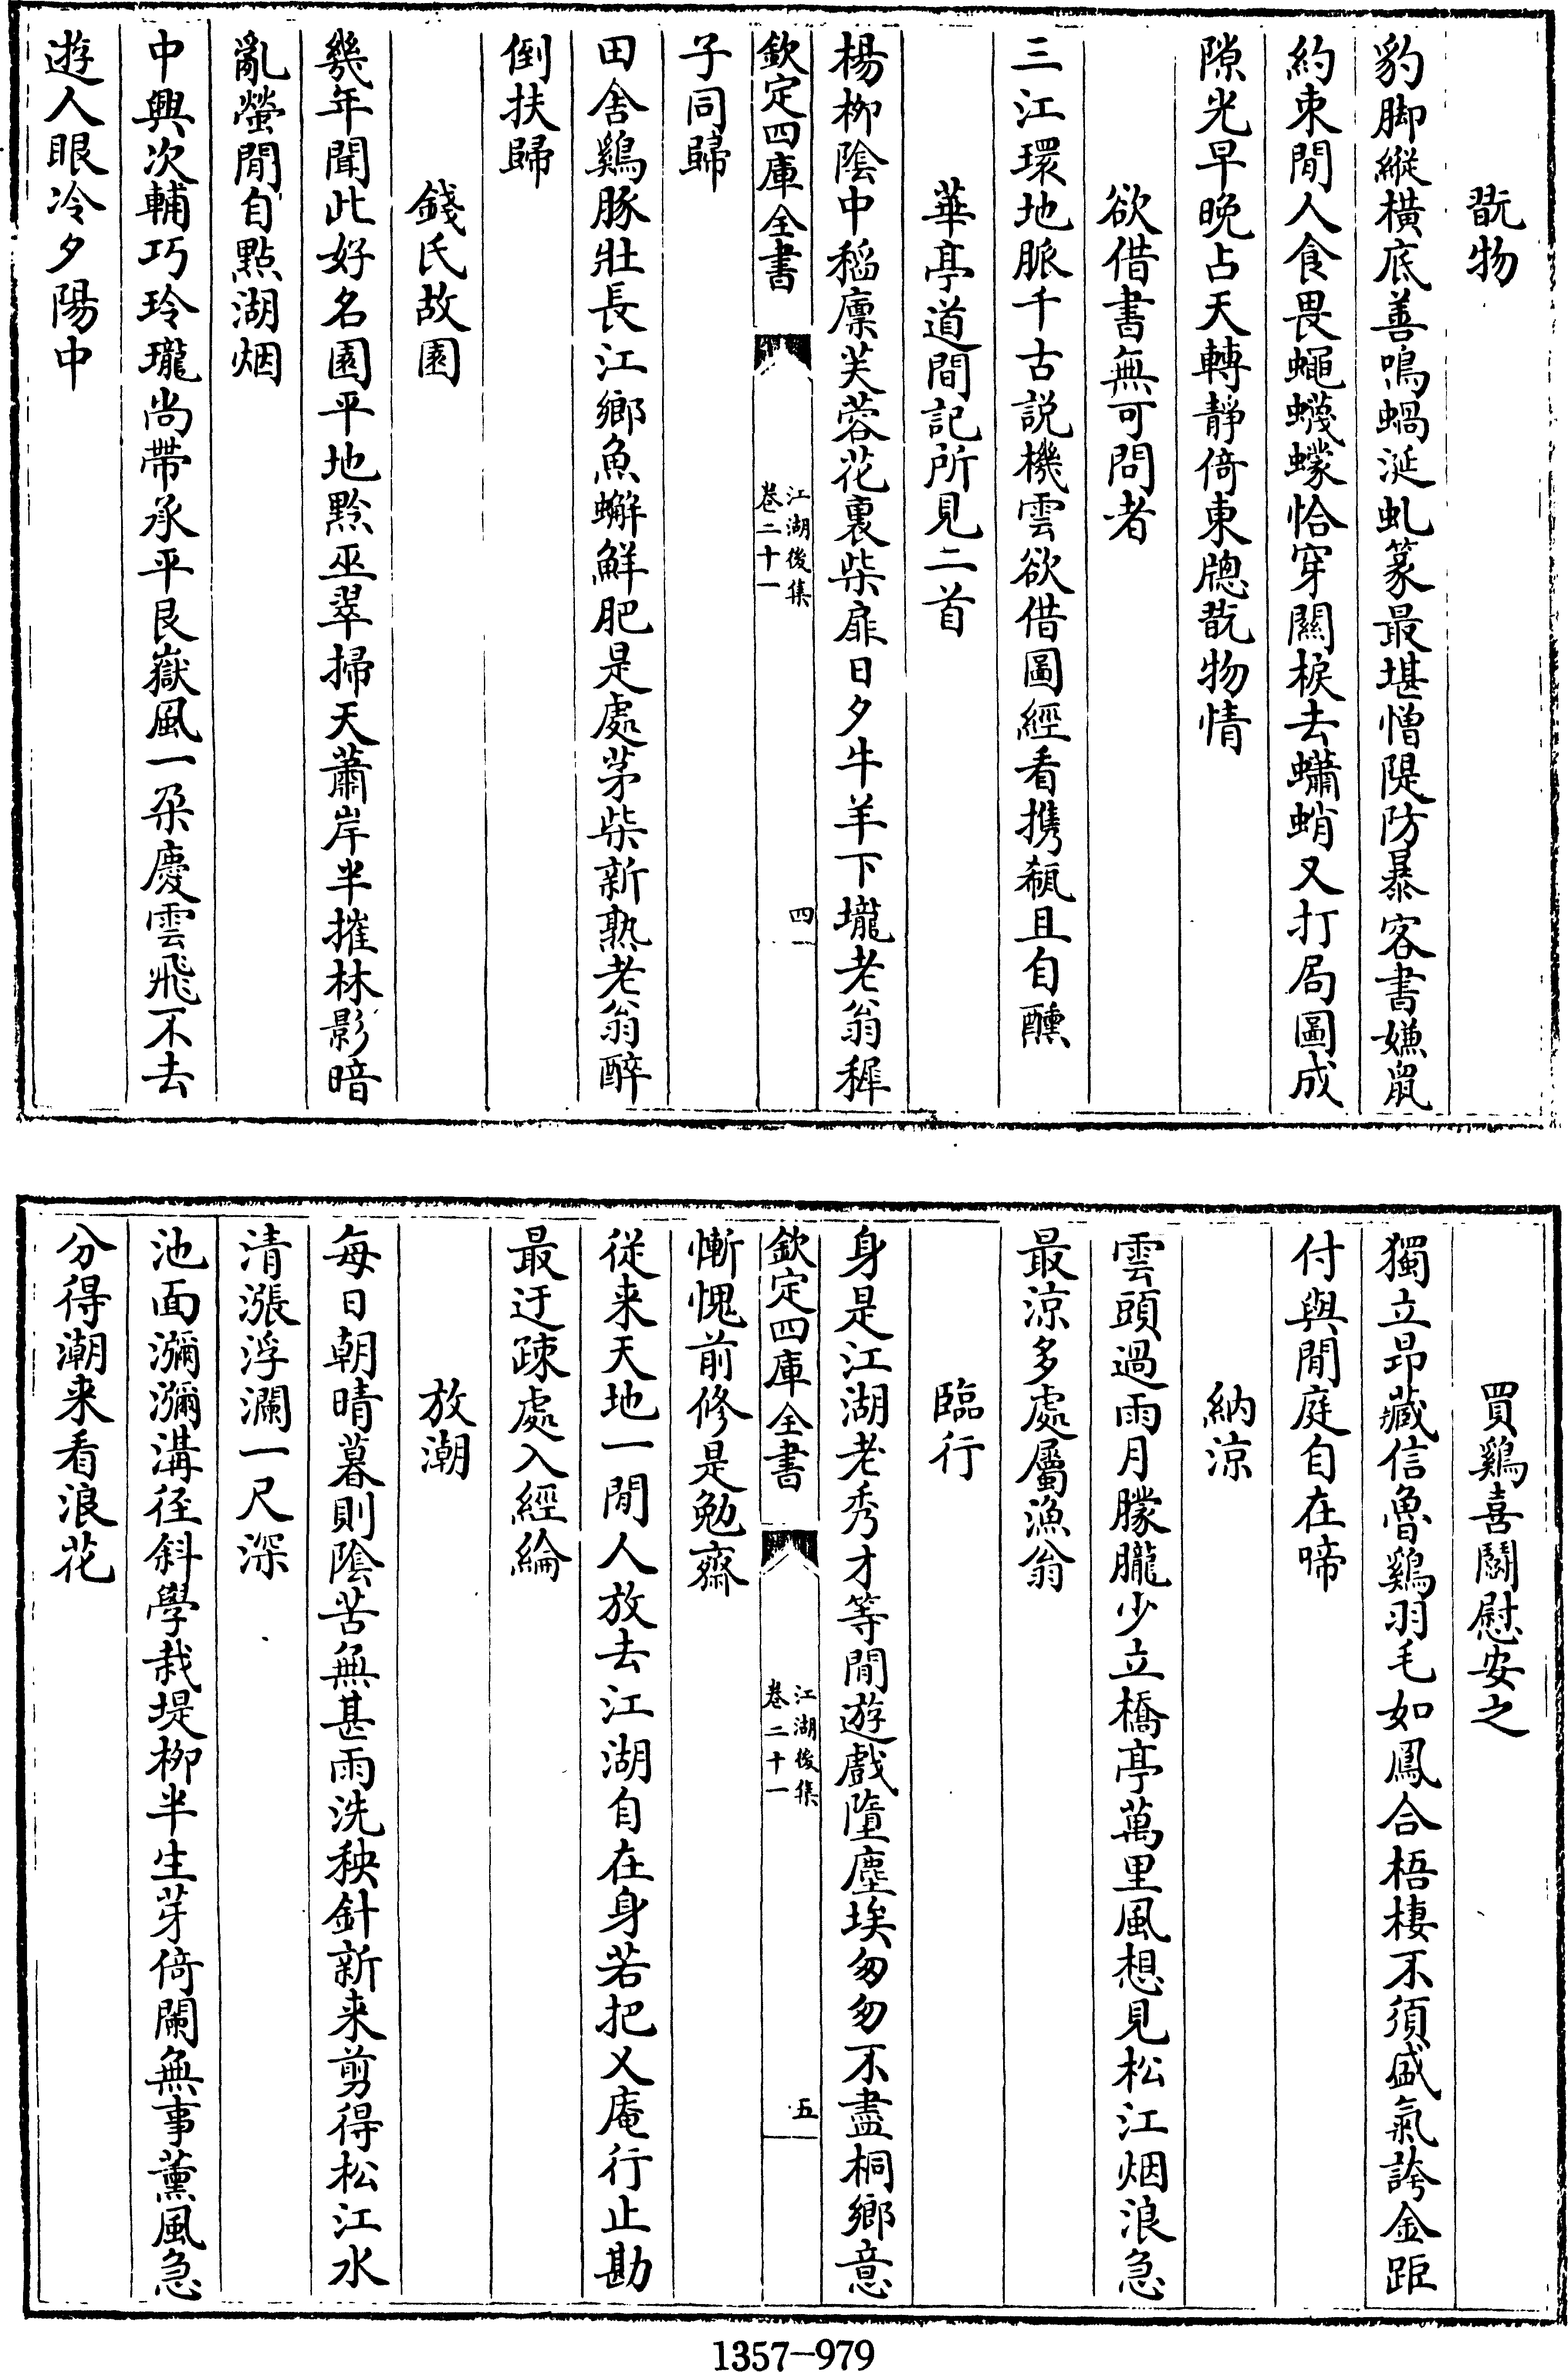 翫物
豹脚縱橫底善鳴蝸涎虬篆最堪憎隄防暴客書嫌鼠
約束閒人食畏蠅蠛蠓恰穿關棙去蠨蛸又打局圖成
隙光早晚占天轉靜倚東牕翫物情
欲借書無可問者
三江環地脈千古説機雲欲借圖經看攜瓻且自醺
華亭道間記所見二首
楊柳陰中稻廪芙蓉花裏柴扉日夕牛羊下壠老翁穉
欽定四庫全書
江湖後集
卷二十一
四
子同歸
田舍鷄豚壯長江鄉魚蠏鮮肥是處茅柴新熟老翁醉
倒扶歸
錢氏故園
幾年聞此好名園平地黟巫翠掃天蕭岸半摧林影暗
亂螢閒自點湖烟
中興次輔巧玲瓏尚帶承平艮嶽風一朶慶雲飛不去
遊人眼冷夕陽中
買鷄喜鬬慰安之
獨立昂藏信魯鷄羽毛如鳳合梧棲不須盛氣誇金距
付與閒庭自在啼
納涼
雲頭過雨月朦朧少立橋亭萬里風想見松江烟浪急
最涼多處屬漁翁
臨行
身是江湖老秀才等閒遊戲墮塵埃匆匆不盡桐鄉意
欽定四庫全書
江湖後集
卷二十一
五
慚愧前修是勉齋
從来天地一閒人放去江湖自在身若把乂庵行止勘
最迂疎處入經綸
放潮
每日朝晴暮則陰苦無甚雨洗秧針新来剪得松江水
清漲浮瀾一尺深
池面瀰瀰溝径斜學栽堤柳半生芽倚闌無事薰風急
分得潮来看浪花
1357-979